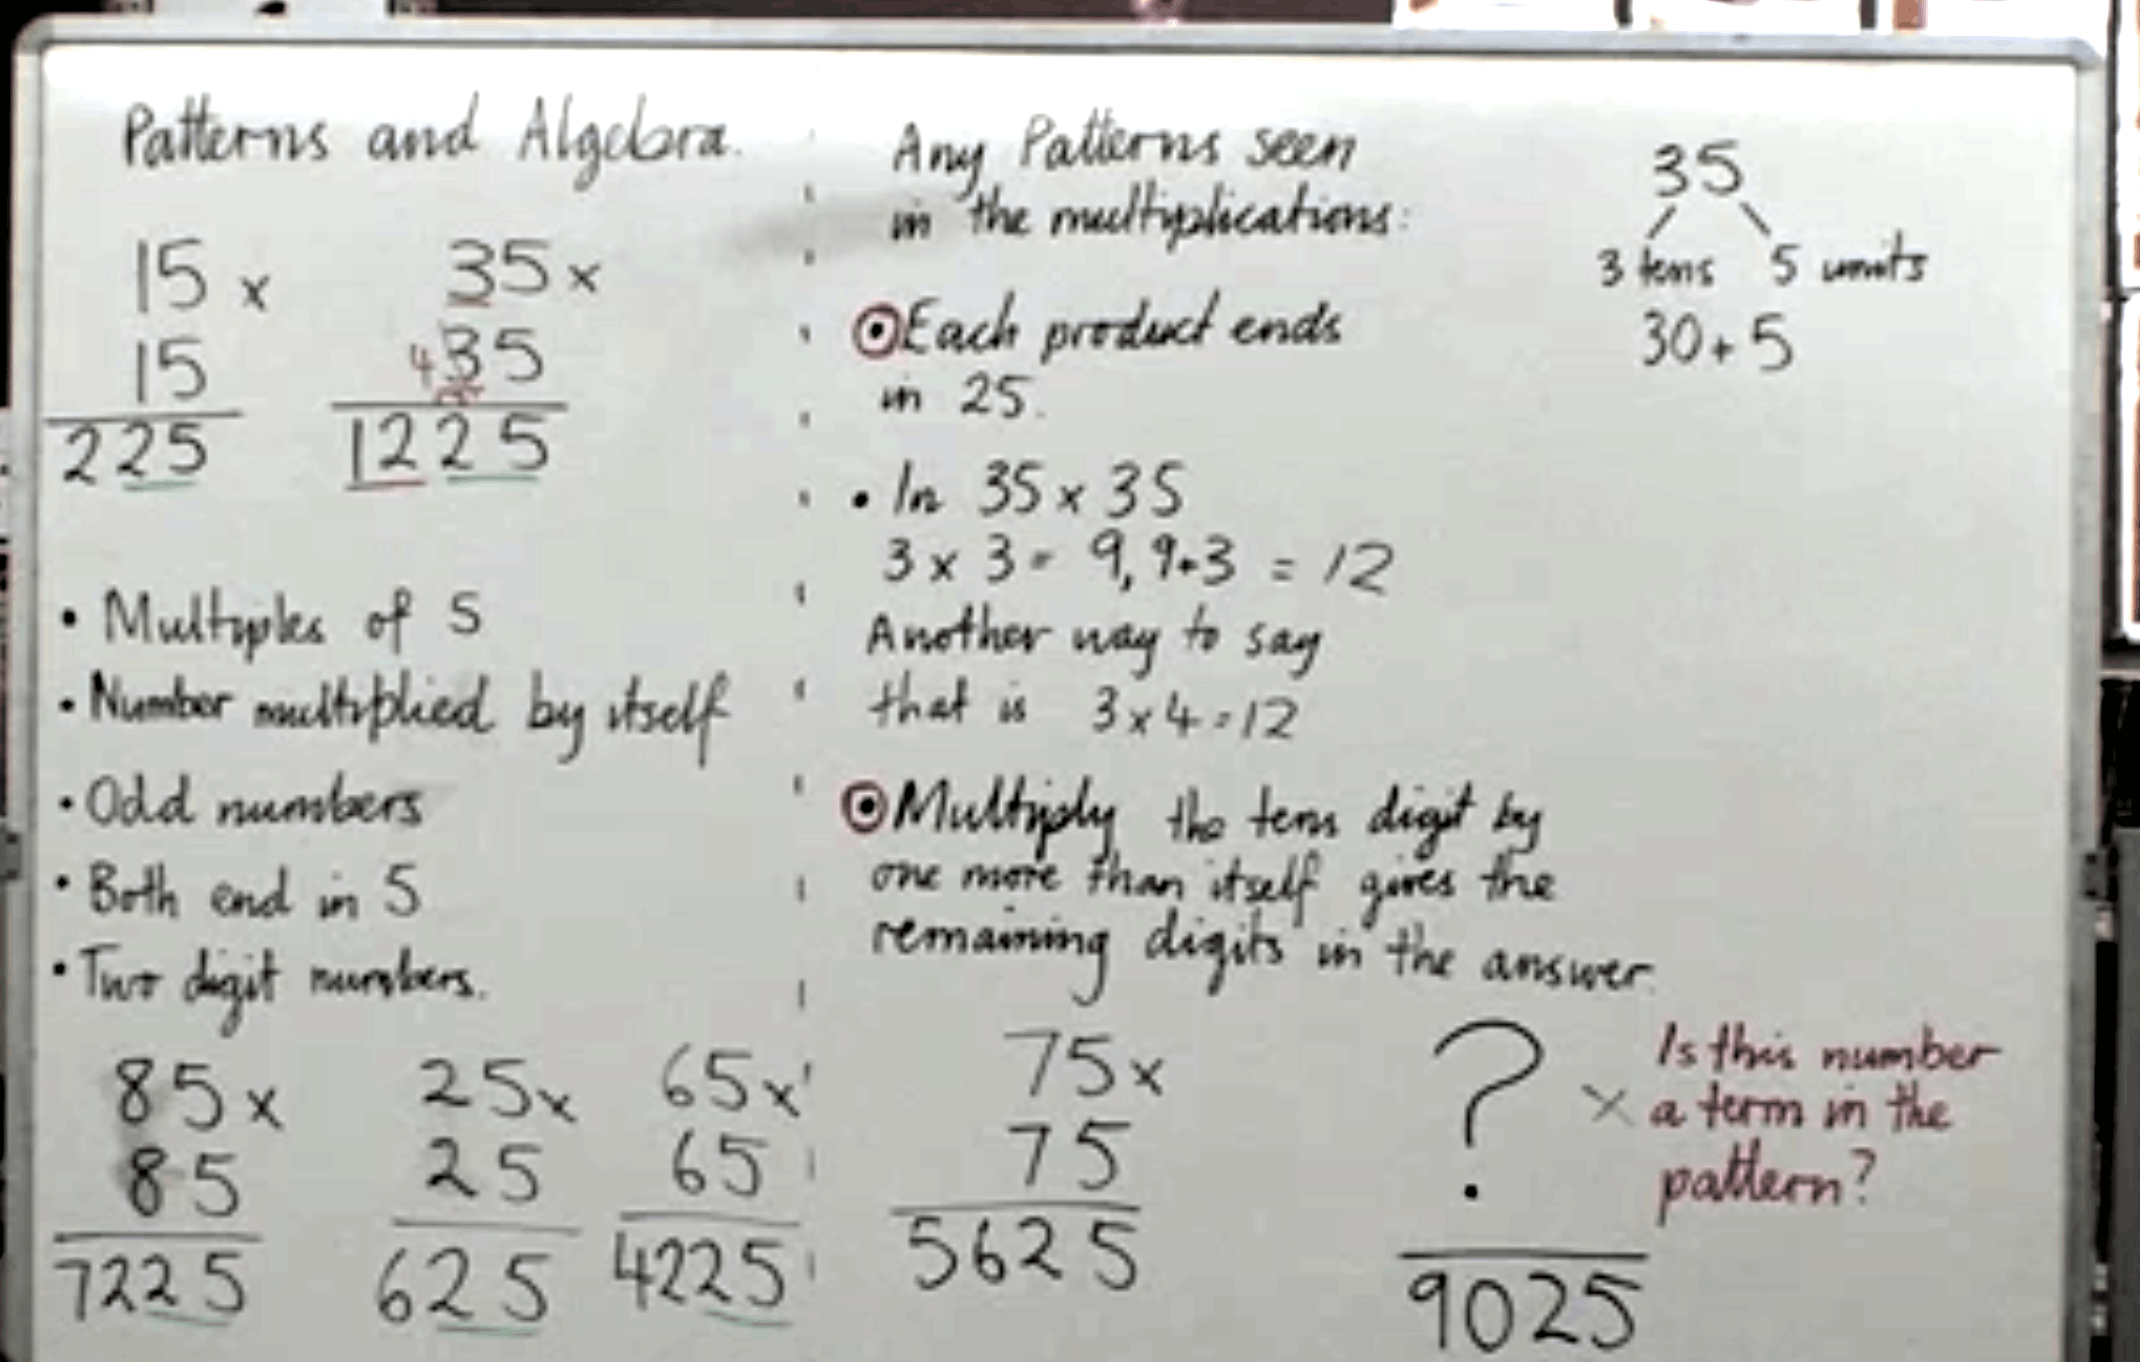 Patterns and Algebra.
15 x
15
225
35 x
4 35
1225
• Multiples of 5
• Number multiplied by itself
• Odd numbers
• Both end in 5
• Two digit numbers.
85 x
85
7225
25 x
25
625
65 x
65
4225
Any Patterns seen
in the multiplications:
• Each product ends
in 25.
• In 35 x 35
3 x 3 = 9, 9+3 = 12
Another way to say
that is 3 x 4 = 12
• Multiply the tens digit by
one more than itself gives the
remaining digits in the answer.
75 x
75
5625
35
3 tens 5 units
30 + 5
? x
9025
Is this number
a term in the
pattern?